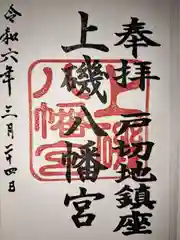 奉拝 戸切地鎮座
上磯八幡宮
令和六年三月二十四日
上磯八幡宮